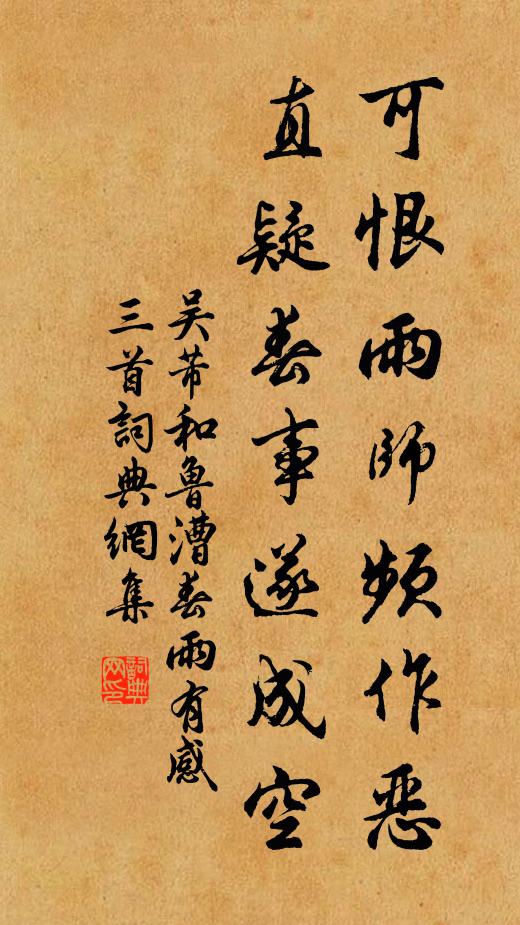 可恨雨師頻作恶
直疑春事遂成空
吴芾和魯漕春雨有感
三首詞典網集
詞典网印